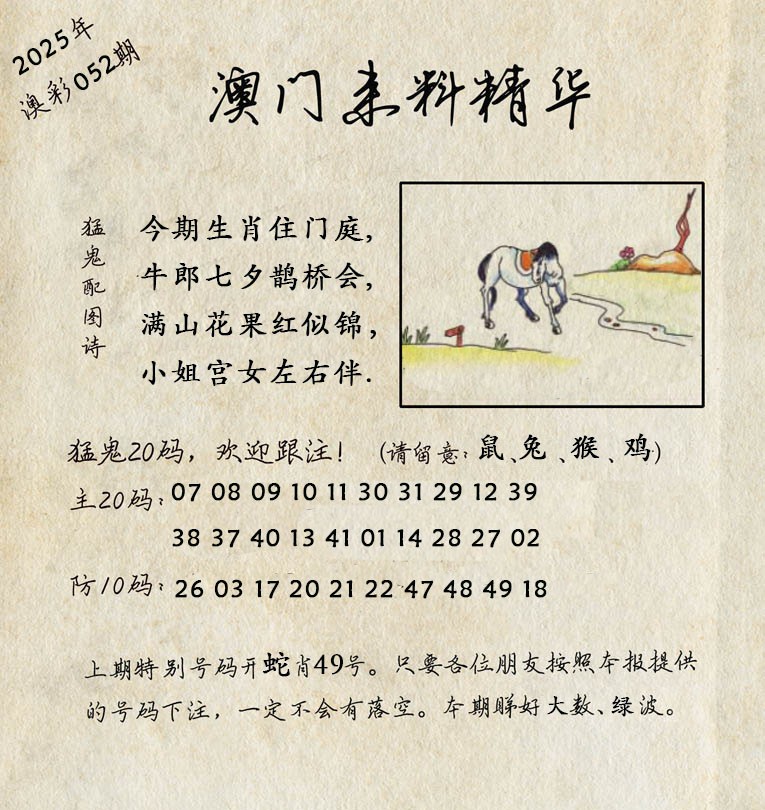 2025年
澳彩052期
澳门来料精华
猛鬼配图诗
今期生肖住门庭,
牛郎七夕鹊桥会,
满山花果红似锦,
小姐宫女左右伴.
猛鬼20码，欢迎跟注！（请留意：鼠、兔、猴、鸡）
主20码：07 08 09 10 11 30 31 29 12 39
38 37 40 13 41 01 14 28 27 02
防10码：26 03 17 20 21 22 47 48 49 18
上期特别号码开蛇肖49号。只要各位朋友按照本报提供
的号码下注，一定不会有落空。本期睇好大数、绿波。